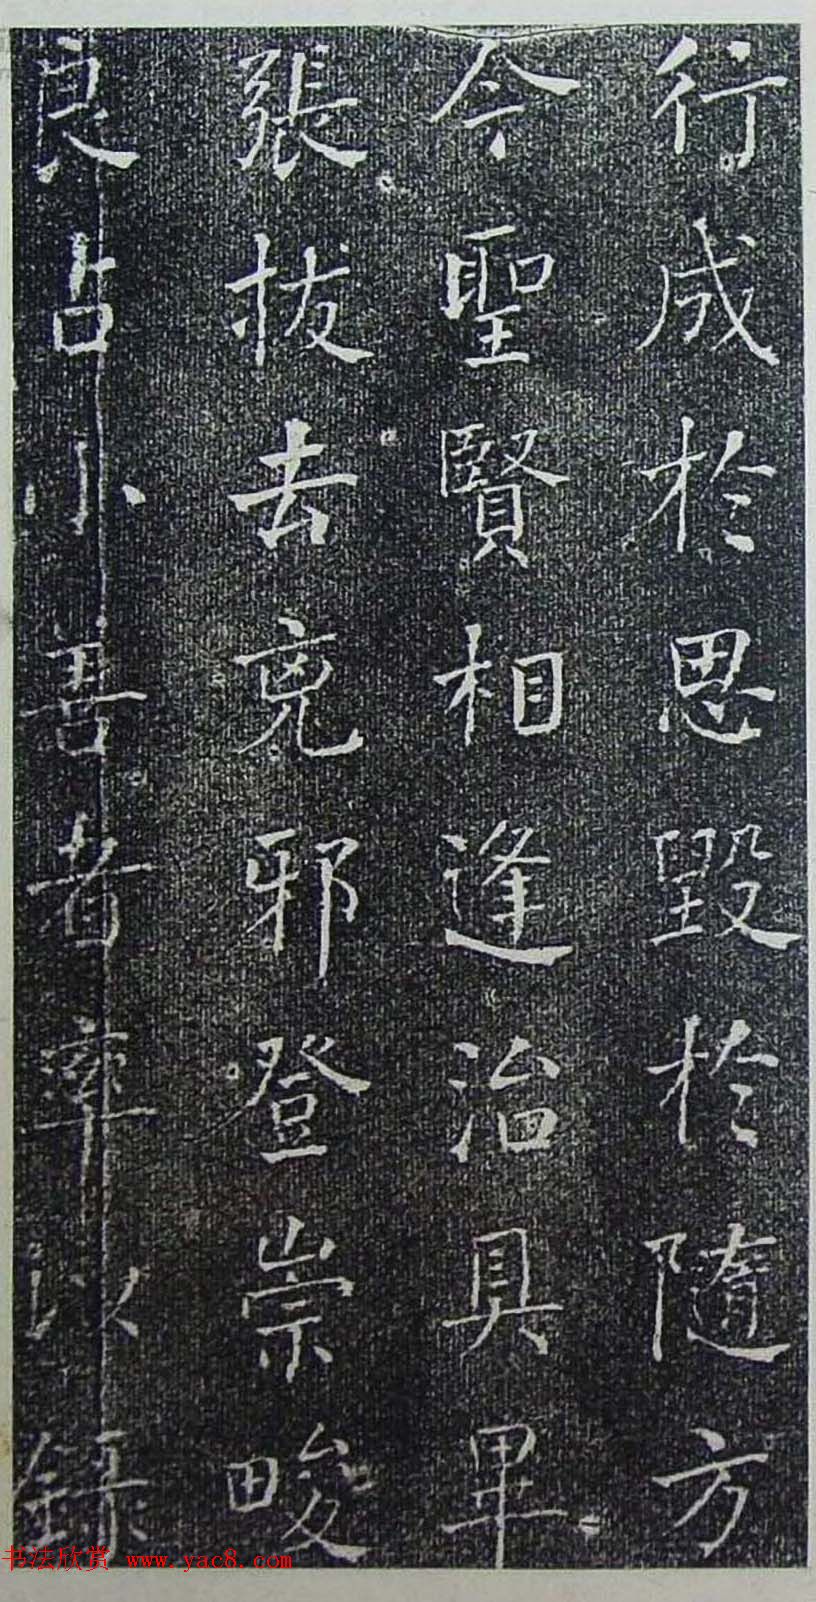 行成於思毀於隨方
今聖賢相逢治具畢
張拔去兇邪登崇畯
良占小善者率以錄
书法欣赏 www.yac8.com